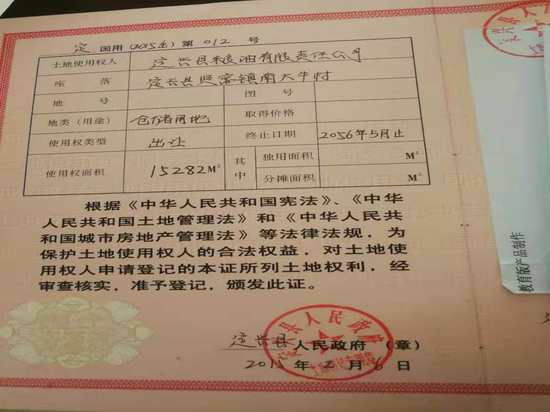 定 国用(2015出)第 012 号
土地使用权人 定兴县粮油有限责任公司
座 落 定兴县贤寓镇南大牛村
地 号 图 号
地类(用途) 仓储用地 取得价格
使用权类型 出让 终止日期 2056年5月止
使用权面积 15282M² 其中 独用面积 M²
分摊面积 M²
根据《中华人民共和国宪法》、《中华
人民共和国土地管理法》和《中华人民共
和国城市房地产管理法》等法律法规，为
保护土地使用权人的合法权益，对土地使
用权人申请登记的本证所列土地权利，经
审查核实，准予登记，颁发此证。
定兴县 人民政府（章）
年 2 月 6 日
县人民政府
教育版产品制作